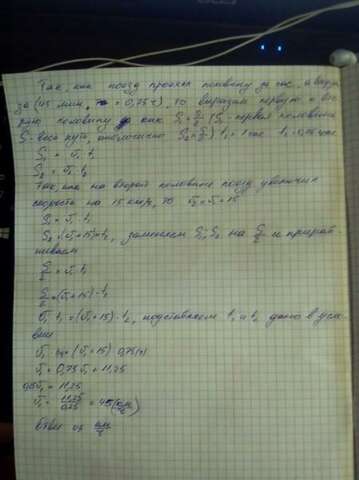 Так, как поезд проехал половину за час, а вторую
за (45 мин, = 0,75 ч), то выразим первую и вто
рую половину как S₁ = S/2 (S₁ - первая половина
S - весь путь, аналогично S₂ = S/2) t₁ = 1 час t₂ = 0,75 часа
S₁ = v₁·t₁
S₂ = v₂·t₂
Так, как на второй половине поезд увеличил
скорость на 15 км/ч, то v₂ = v₁+15
S₁ = v₁·t₁
S₂ = (v₁+15)·t₂, заменяем S₁ S₂ на S/2 и прирав-
ниваем
S/2 = v₁·t₁
S/2 = (v₁+15)·t₂
v₁·t₁ = (v₁+15)·t₂, подставляем t₁ и t₂ дано в усло-
вии
v₁ = (v₁+15)·0,75
v₁ = 0,75v₁ + 11,25
0,25v₁ = 11,25
v₁ = 11,25/0,25 = 45 (км/ч)
Ответ 45 км/ч